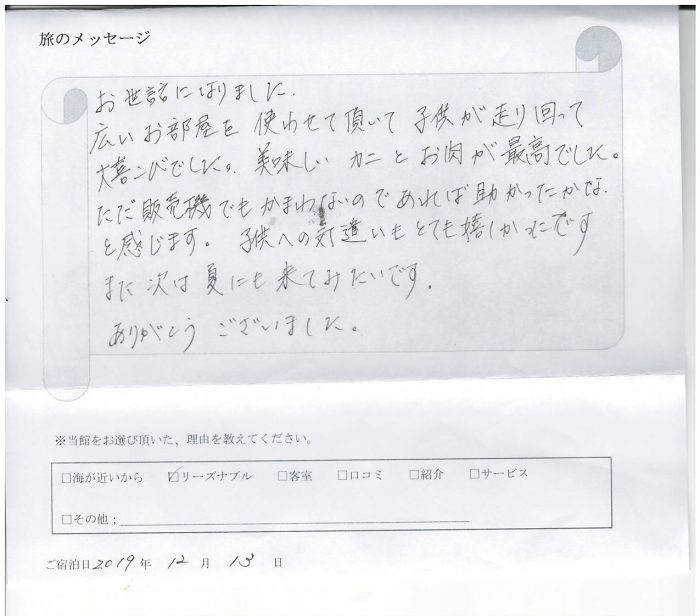 旅のメッセージ
お世話になりました.
広いお部屋を 使わせて頂いて 子供が 走り回って
大喜こびでした。美味しい カニと お肉が 最高でした。
ただ 販売機でもかまわないのであれば助かったかな.
と感じます。 子供への気遣いもとても嬉しかったです
また 次は 夏にも 来てみたいです.
ありがとう ございました。
※当館をお選び頂いた、理由を教えてください。
□海が近いから ☑リーズナブル □客室 □口コミ □紹介 □サービス
□その他;
ご宿泊日2019年 12月 13日